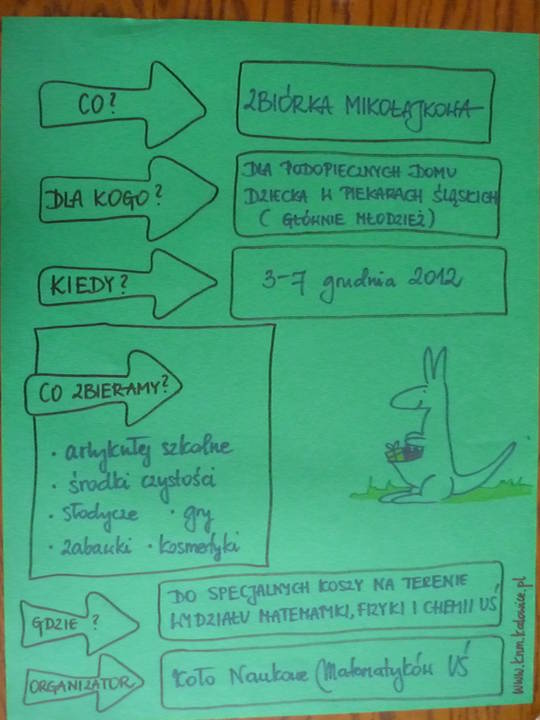 CO?
ZBIÓRKA MIKOŁAJKOWA
DLA KOGO?
DLA PODOPIECZNYCH DOMU
DZIECKA W PIEKARACH ŚLĄSKICH
(GŁÓWNIE MŁODZIEŻ)
KIEDY?
3-7 grudnia 2012
CO ZBIERAMY?
· artykuły szkolne
· środki czystości
· słodycze · gry
· zabawki · kosmetyki
GDZIE?
DO SPECJALNYCH KOSZY NA TERENIE
WYDZIAŁU MATEMATYKI, FIZYKI I CHEMII UŚ
ORGANIZATOR
Koło Naukowe Matematyków UŚ
www.knm.katowice.pl